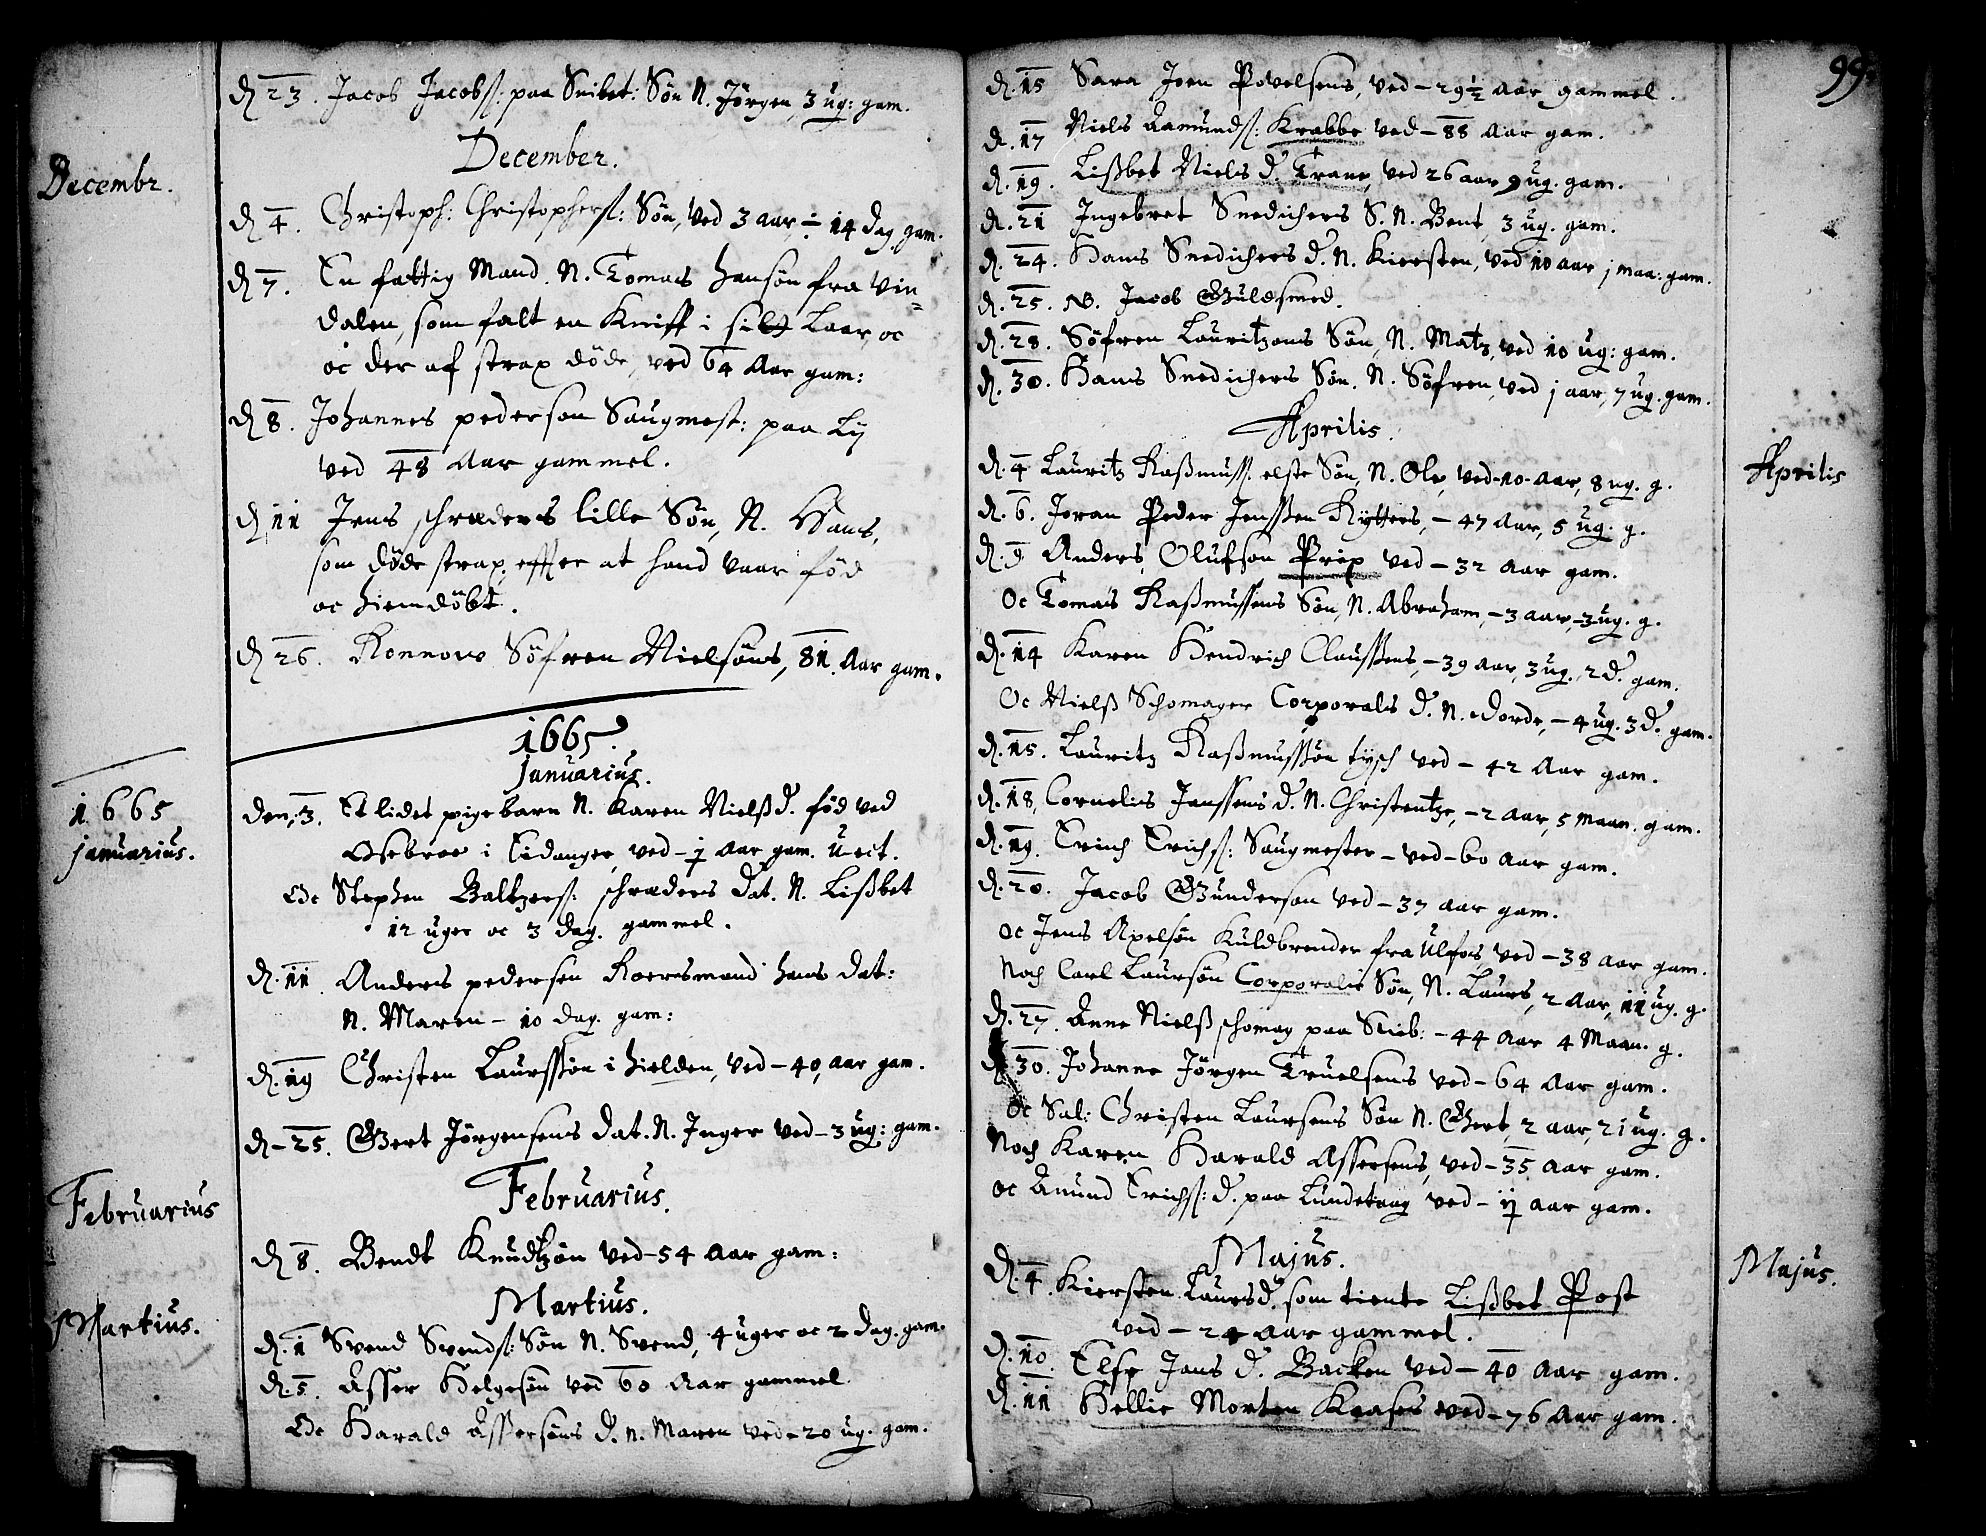 d 23. Jacob Jacobss: paa Snibet: Søn N. Jørgen, 3 ug: gam.
Decembr.
December.
d 4. Christoph: Christopherss: Søn, ved 3 aar, ÷ 14 dag gam.
d 7. En fattig Mand N. Tomas hansøn fra Vin=
dalen, som falt en Kniff i sit Laar, oc
oc der af strax døde, ved 64 Aar gam:
d 8. Johannes pederson Saugmest: paa Lij
ved 48 Aar gammel.
d 11 Jens schraders lille Søn, N. Hans,
som døde strax effter at hand vaar fød
oc hiemdøbt.
d 26. Ronnow Søfren Nielsøns, 81. Aar gam.
1665.
Januarius.
1665
Januarius.
den. 3. Et lidet pigebarn N. Karen Nielßd. fød ved
Osebroe i Eidanger, ved - 1 Aar gam. u-ect.
Oc Stephen Baltzerss: schraders dat. N. Lißbet
12 uger oc 3 dag. gammel.
d. 11 Anders pedersen Roersmand hans dat:
N. Maren - 10 dag. gam:
d. 19 Christen Laurssøn i hielden, ved - 40, aar gam.
d - 25. Gert Jørgensens dat. N. Inger ved - 3 ug: gam.
Februarius
Februarius.
d 8. Bendt Knudtzøn ved - 54 Aar gam:
Martius.
Martius.
d. 1 Svend Svendss: Søn N. Svend, 4 uger oc 2 dag. gam.
d. 5. Asser Helgesøn ved 60 Aar gammel
Oc Harald Assersøns d. N. Maren ved - 20 ug. gam.
99.
d. 15 Sara Joen Povelsens, ved - 29½ Aar gammel.
d. 17 Niels Aamundss: Krabbe ved - 88 Aar gam.
d. 19. Lißbet Niels d. Trane, ved 26 aar 9 ug. gam.
d. 21 Ingebret Snedichers S. N. Bent, 3 ug. gam.
d. 24. Hans Snedichers d. N. Kiersten, ved 10 aar 1 maa: gam.
d. 25. N. Jacob Guldsmed.
d. 28. Søfren Lauritzøns Søn, N. Matz, ved 10 ug: gam.
d. 30. Hans Snedichers Søn. N. Søfren, ved 1 aar, 7 ug. gam.
Aprilis.
Aprilis
d. 4 Lauritz Raßmuss. elste Søn, N. Ole, ved - 10 - Aar, 8 ug. g.
d. 6. Joran Peder Jenssen Rytters, - 47 Aar, 5 ug. g.
d. 9 Anders Olufson Prip ved - 32 Aar gam.
Oc Tomas Raßmussens Søn, N. Abraham, - 3 aar, - 3 ug. g.
d. 14 Karen Hendrich Claussens, - 39 Aar, 3 ug. 2 d. gam.
Oc Nielß Schomager Corporals d. N. Dorde, - 4 ug. 3 d. gam.
d. 15. Lauritz Raßmussøn tysch ved - 42 Aar gam.
d. 18, Cornelis Janssens d. N. Christentze, - 2 Aar, 5 maan. gam.
d. 19. Erich Erichss: Saugmester - ved - 60 Aar gam.
d. 20. Jacob Gunderson ved - 37 aar gam.
oc Jens Axelsøn Kuldbrender fra Ulfos, ved - 38 aar gam.
Noch Carl Laursøn Corporals Søn, N. Laurs, 2 Aar, 11 ug. g.
d. 27. Anne Nielß schomag paa Snib: - 44 Aar 4 Maan. g.
d 30. Johanne Jørgen Truelsens ved - 64 Aar gam.
Oc Sal: Christen Laursens Søn N. Gert, 2 aar, 21 ug. g.
Noch Karen Harald Assersens, ved - 35 Aar gam.
oc Amund Erichss: d. paa Lundetang ved - 11 aar gam.
Majus.
Majus.
d. 4. Kiersten Laursd. som tiente Lißbet Post
ved - 24 Aar gammel.
d. 10. Else Jans d. Backen ved - 40 Aar gam.
d. 11 Hellie Morten Krafes ved - 76 Aar gam.